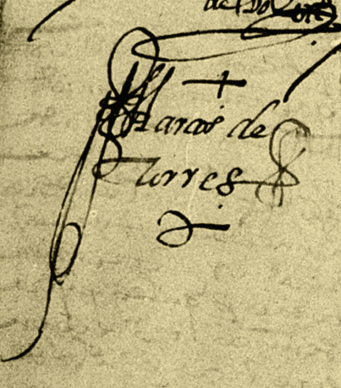 de
Marcos de
Torres